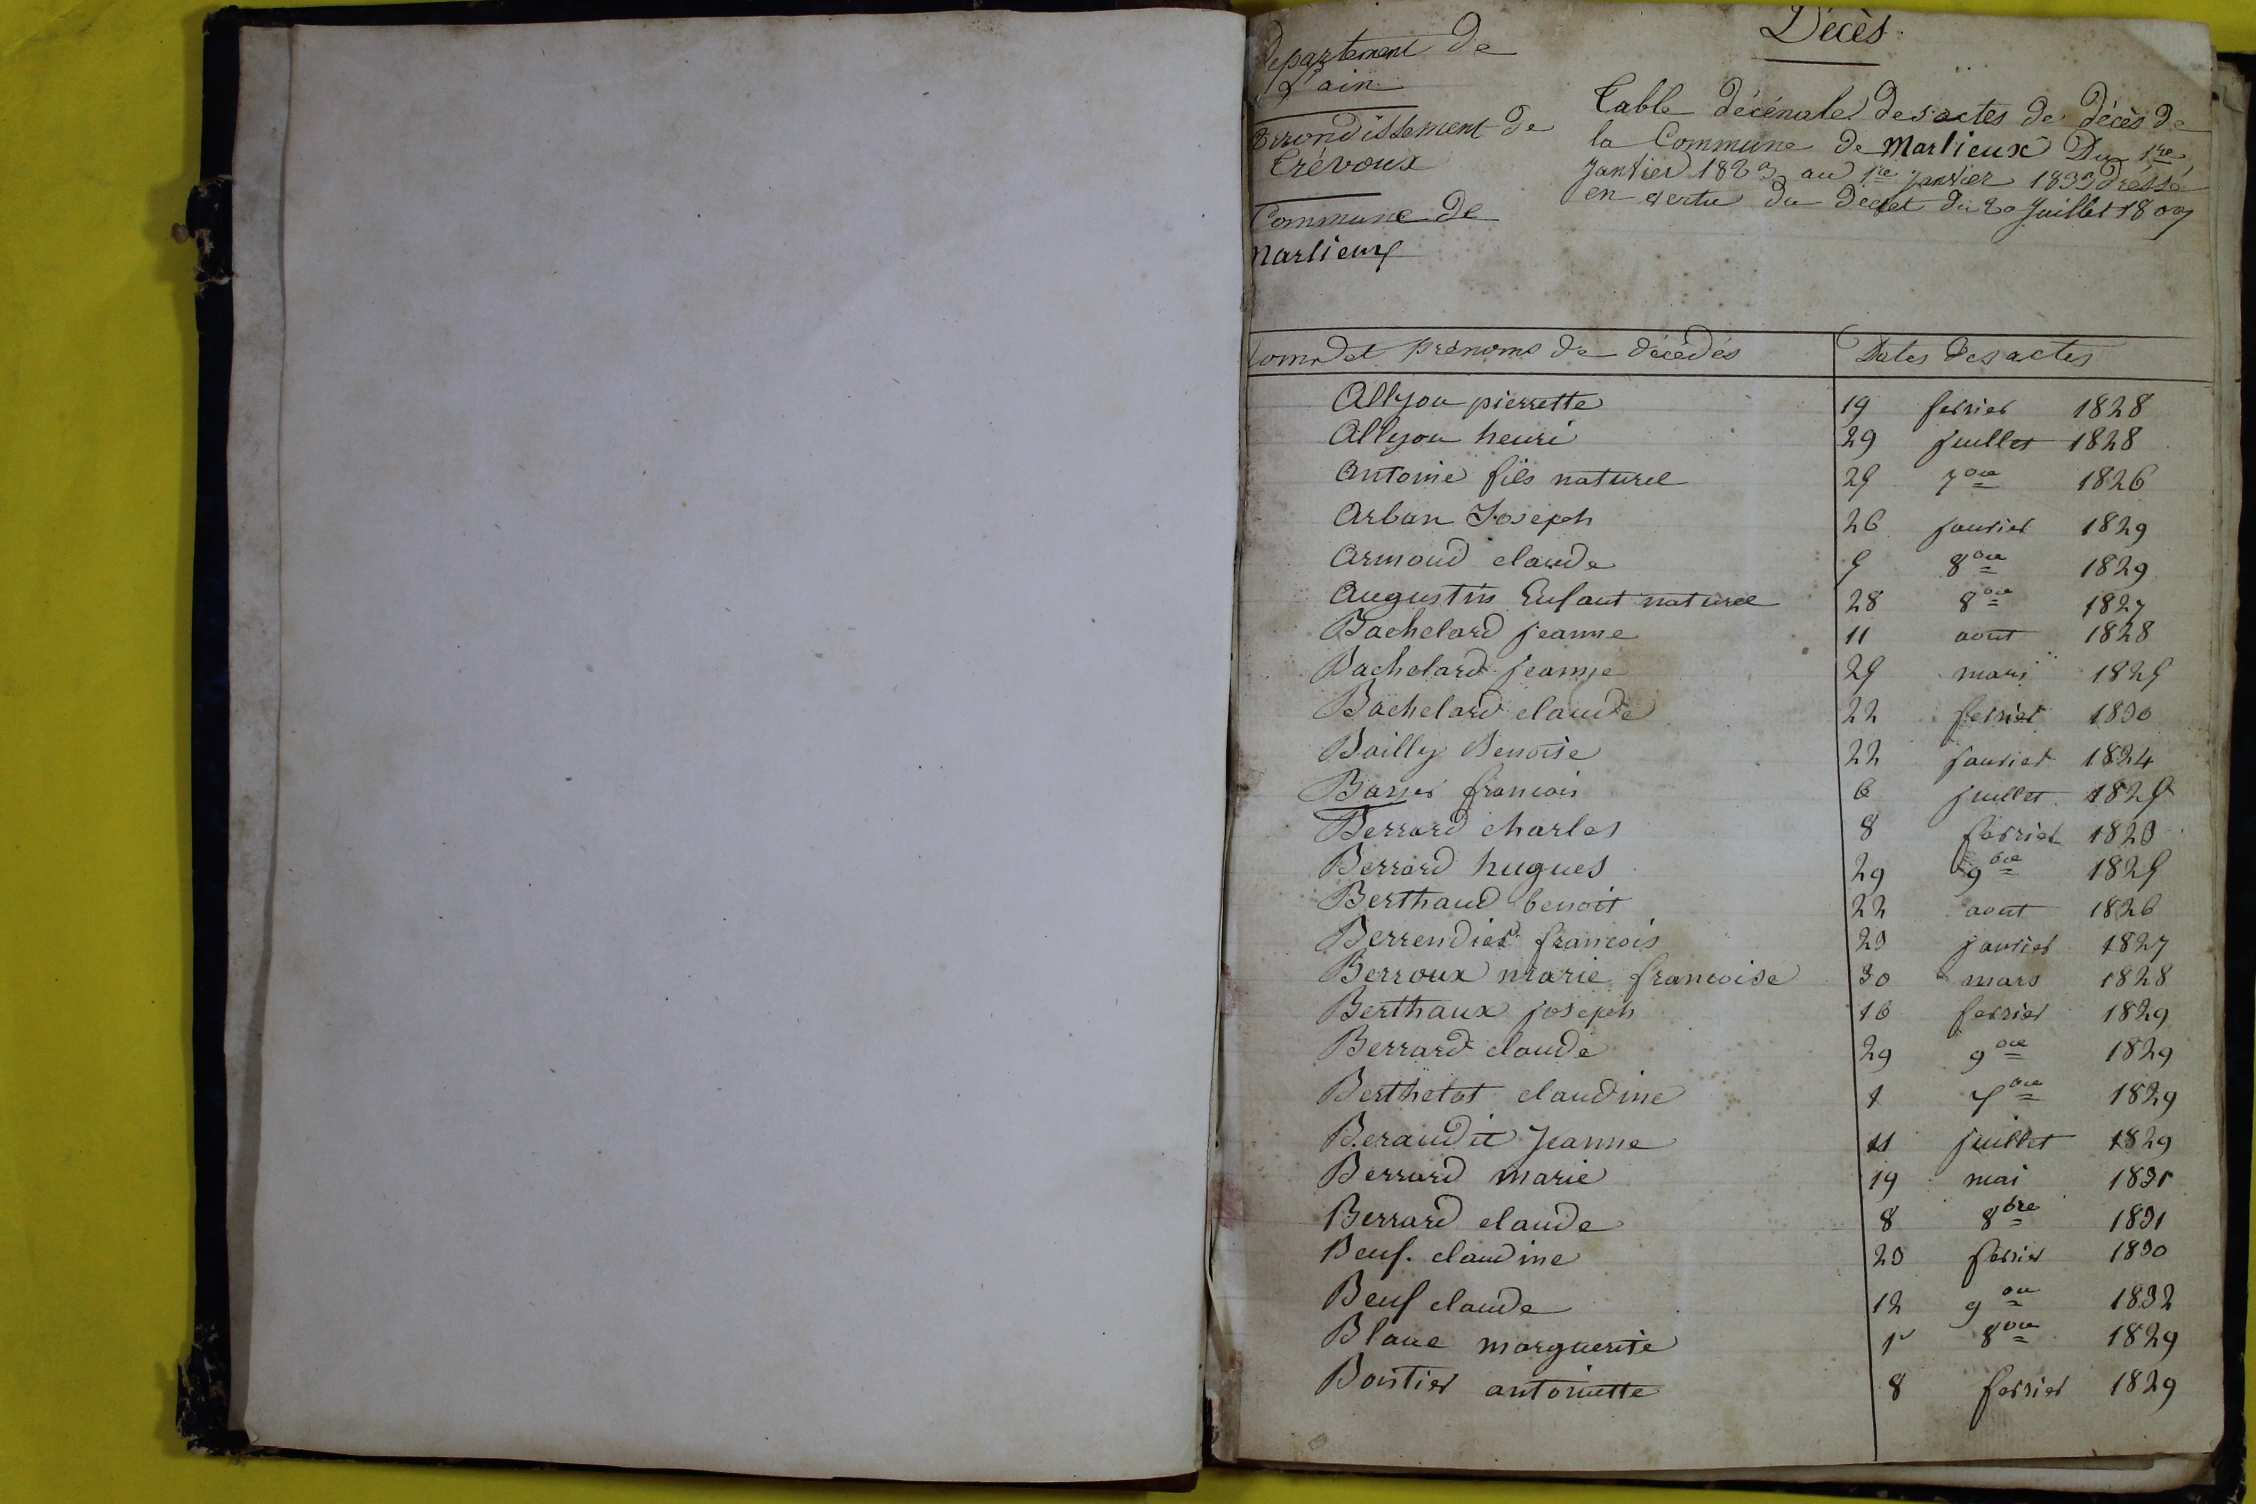 Décès
Département de
L'ain
Arrondissement de
Trévoux
Commune de
Marlieux
Table décénale des actes de décès de
la Commune de Marlieux Du 1re
Janvier 1823 au 1re Janvier 1833 dréssé
en vertu du décret du 20 Juillet 1807
Noms et prénoms de décédés Dates des actes
Allyou pierrette 19 fevrier 1828
Allyou henri 29 juillet 1828
Antoine fils naturel 25 7bre 1826
Arban Joseph 26 janvier 1829
Armoud claude 5 8bre 1829
Augustin Enfant naturel 28 8bre 1827
Bachelard jeanne 11 aout 1828
Bachelard jeanne 25 mars 1825
Bachelard claude 22 fevrier 1830
Bailly Benoise 22 janvier 1824
francois 6 juillet 1825
Berrard charles 8 fevrier 1823
Berrard hugues 29 9bre 1825
Berthaud benoit 22 aout 1826
Berrendier francois 23 janvier 1827
Berroux marie francoise 30 mars 1828
Berthaux joseph 16 fevrier 1829
Berrard claude 29 9bre 1829
Berthelot claudine 1 7bre 1829
Beraudit Jeanne 11 juillet 1829
Berrard marie 19 mai 1831
Berrard claude 8 8bre 1831
Beuf claudine 23 fevrier 1830
Beuf claude 12 9bre 1832
Blanc marguerite 1r 8bre 1829
Boutier antoinette 8 fevrier 1829